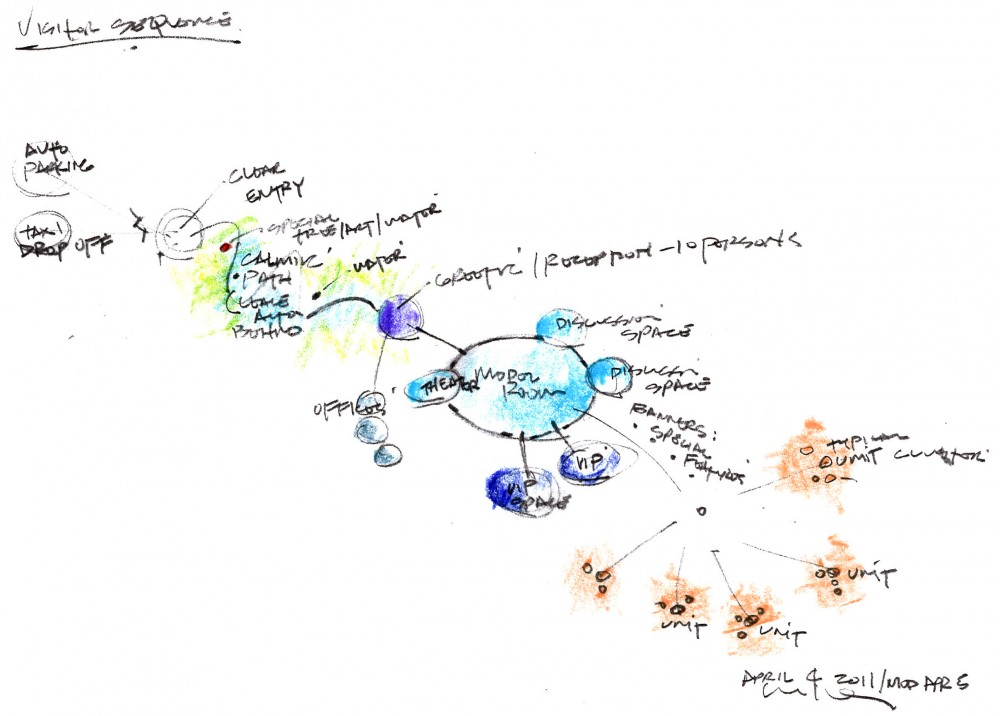 VISITOR SEQUENCE
AUTO
PARKING
TAXI
DROP OFF
CLEAR
ENTRY
SPECIAL
TREE/ART/WATER
CALMING
PATH
(LEAVE
AUTO
BEHIND
WATER
GREETING/RECEPTION-10 PERSONS
OFFICES
THEATER
MODEL
ROOM
DISCUSSION
SPACE
DISCUSSN
SPACE
BANNERS:
• SPECIAL
• FEATURES
VIP
VIP
SPACE
TYPICAL
UNIT CLUSTER
UNIT
UNIT
UNIT
APRIL 4 2011/MOD APR 5